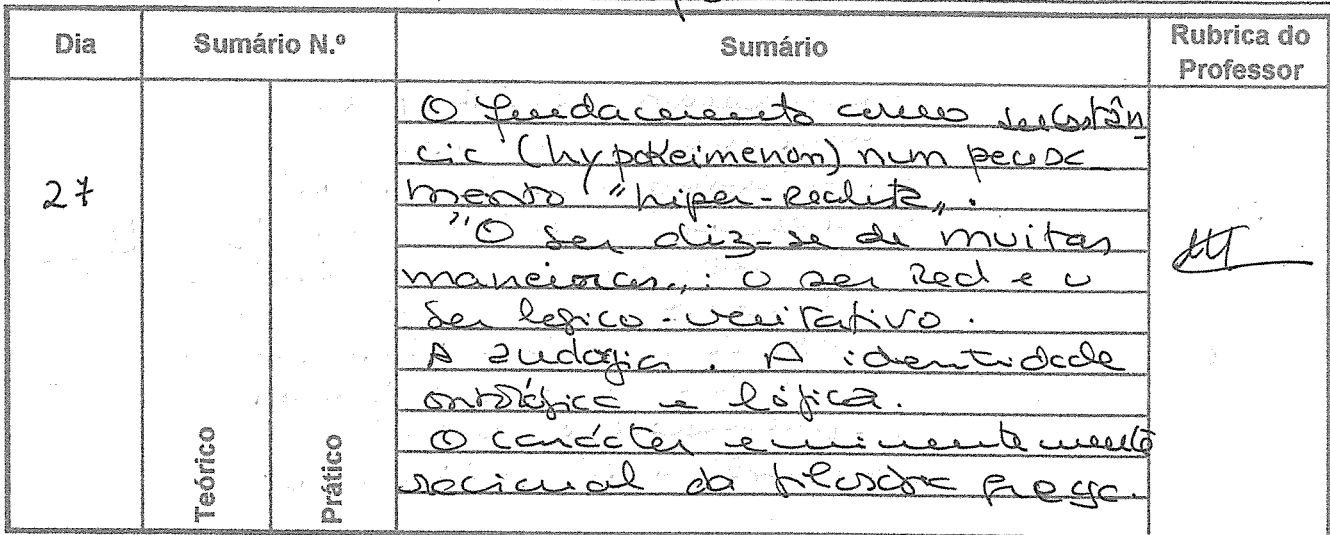 Dia Sumário N.º Sumário Rubrica do Professor
27
Teórico
Prático
O fundamento como substân
cia (hypokeimenon) num pensa
mento "hiper-realista".
"O ser diz-se de muitas
maneiras": o ser real e o
ser logico-veritativo.
A analogia. A identidade
ontológica e lógica.
O carácter eminentemente
racional da filosofia grega.